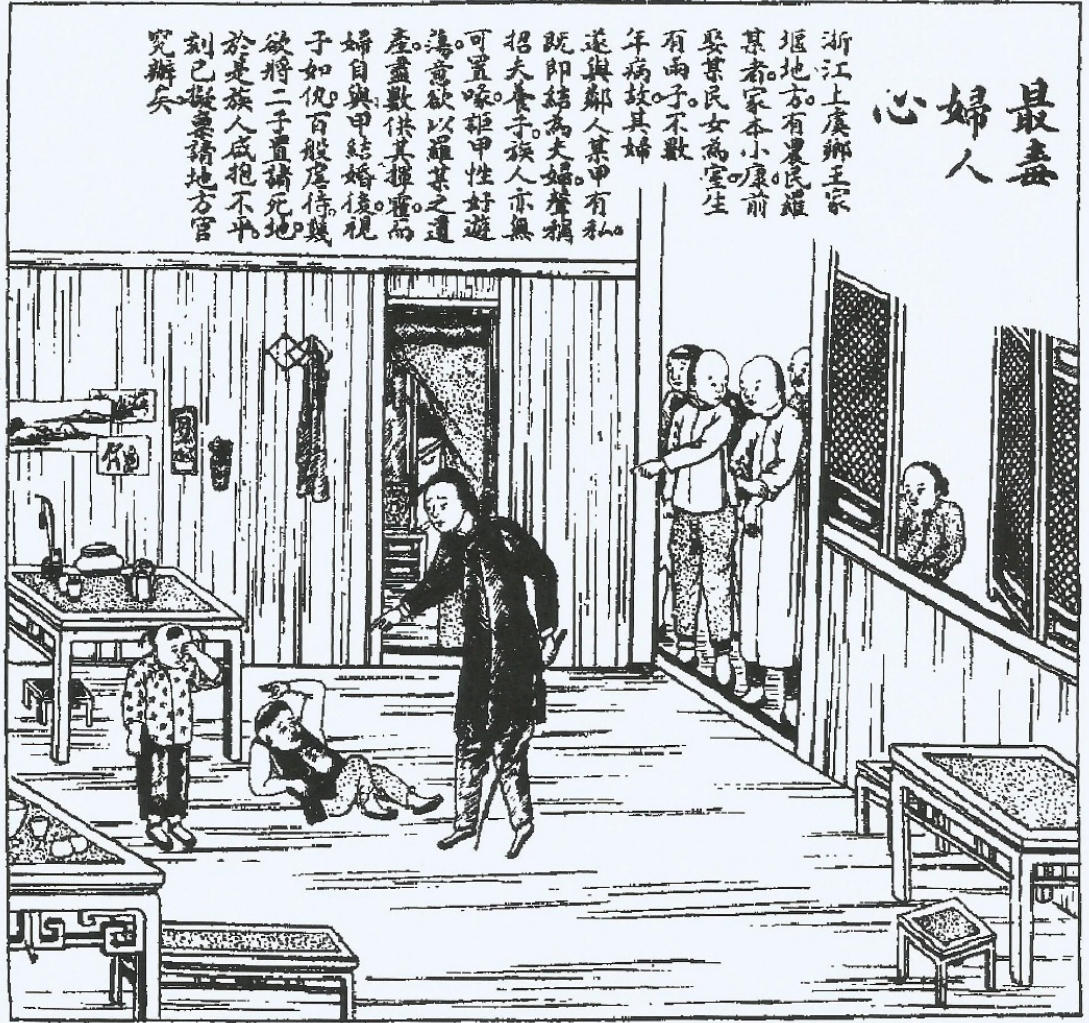 最毒
婦人
心
浙江上虞鄉王家
堰地方。有農民羅
某者。家本小康前
娶某民女為室。生
有兩子。不數
年病故。其婦
遂與鄰人某甲有私。
既即結為夫婦。聲稱
招夫養子。族人亦無
可置喙。詎甲性好遊
蕩。意欲以羅某之遺
產。盡數供其揮霍。而
婦自與甲結婚後。視
子如仇。百般虐待。幾
欲將二子置諸死地。
於是族人咸抱不平。
刻已擬稟請地方官
究辦矣